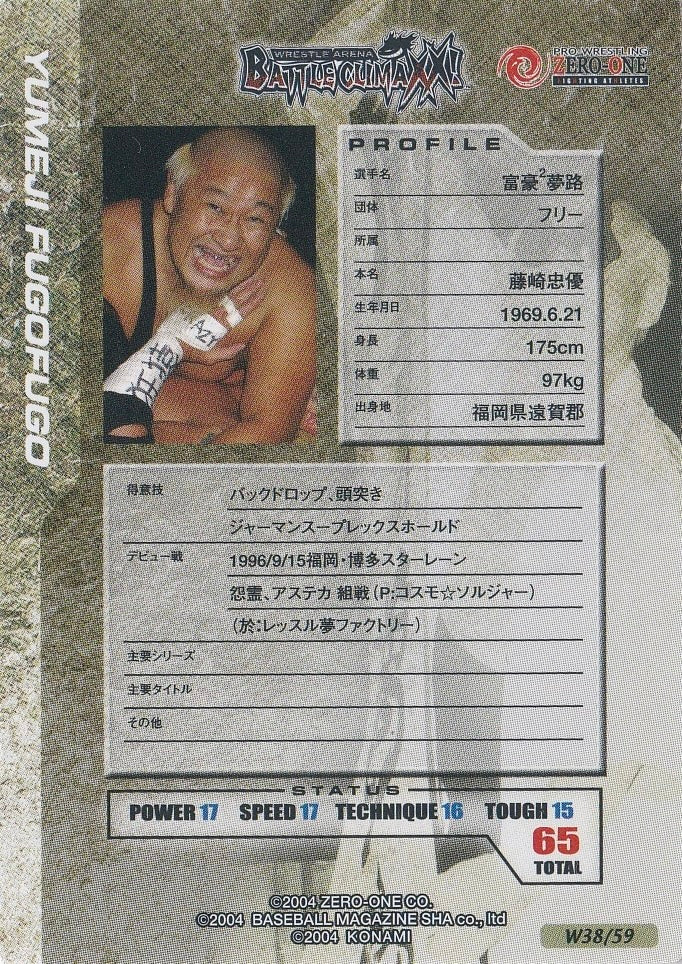 WRESTLE ARENA
BATTLE CLIMAXX!
PRO-WRESTLING
ZERO-ONE
YUMEJI FUGOFUGO
PROFILE
選手名 富豪²夢路
団体 フリー
所属
本名 藤崎忠優
生年月日 1969.6.21
身長 175cm
体重 97kg
出身地 福岡県遠賀郡
AZT
得意技 バックドロップ、頭突き
ジャーマンスープレックスホールド
デビュー戦 1996/9/15福岡・博多スターレーン
怨霊、アステカ 組戦（P:コスモ☆ソルジャー）
（於:レッスル夢ファクトリー）
主要シリーズ
主要タイトル
その他
STATUS
POWER 17 SPEED 17 TECHNIQUE 16 TOUGH 15
65
TOTAL
©2004 ZERO-ONE CO.
©2004 BASEBALL MAGAZINE SHA co., ltd
©2004 KONAMI
W38/59